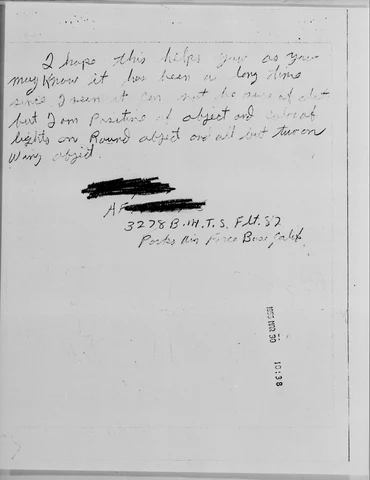 I hope this helps you as you
may know it has been a long time
since I seen it can not be sure of dat
but I am Positive of object and color of
lights on Round object and all but two on
Wing object.
AF
3278 B.M.T.S. Flt. 57
Parks Air Force Base Calif
1955 MAR 30 10:38